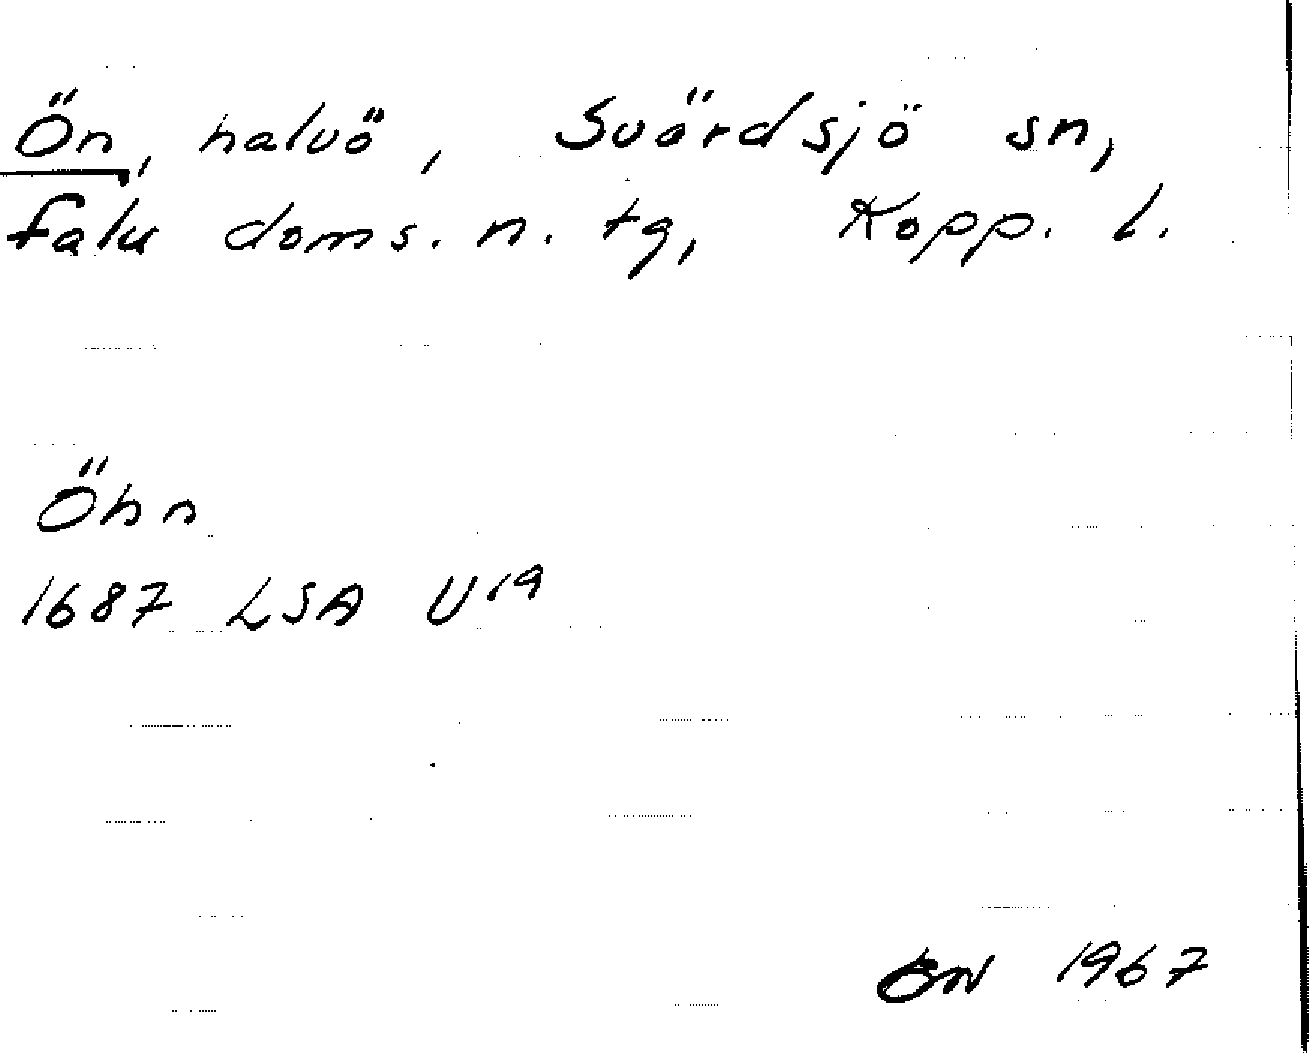 Ön, halvö, Svärdsjö sn,
Falu doms. n. tg, Kopp. l.
Öhn
1687 LSA U19
1967